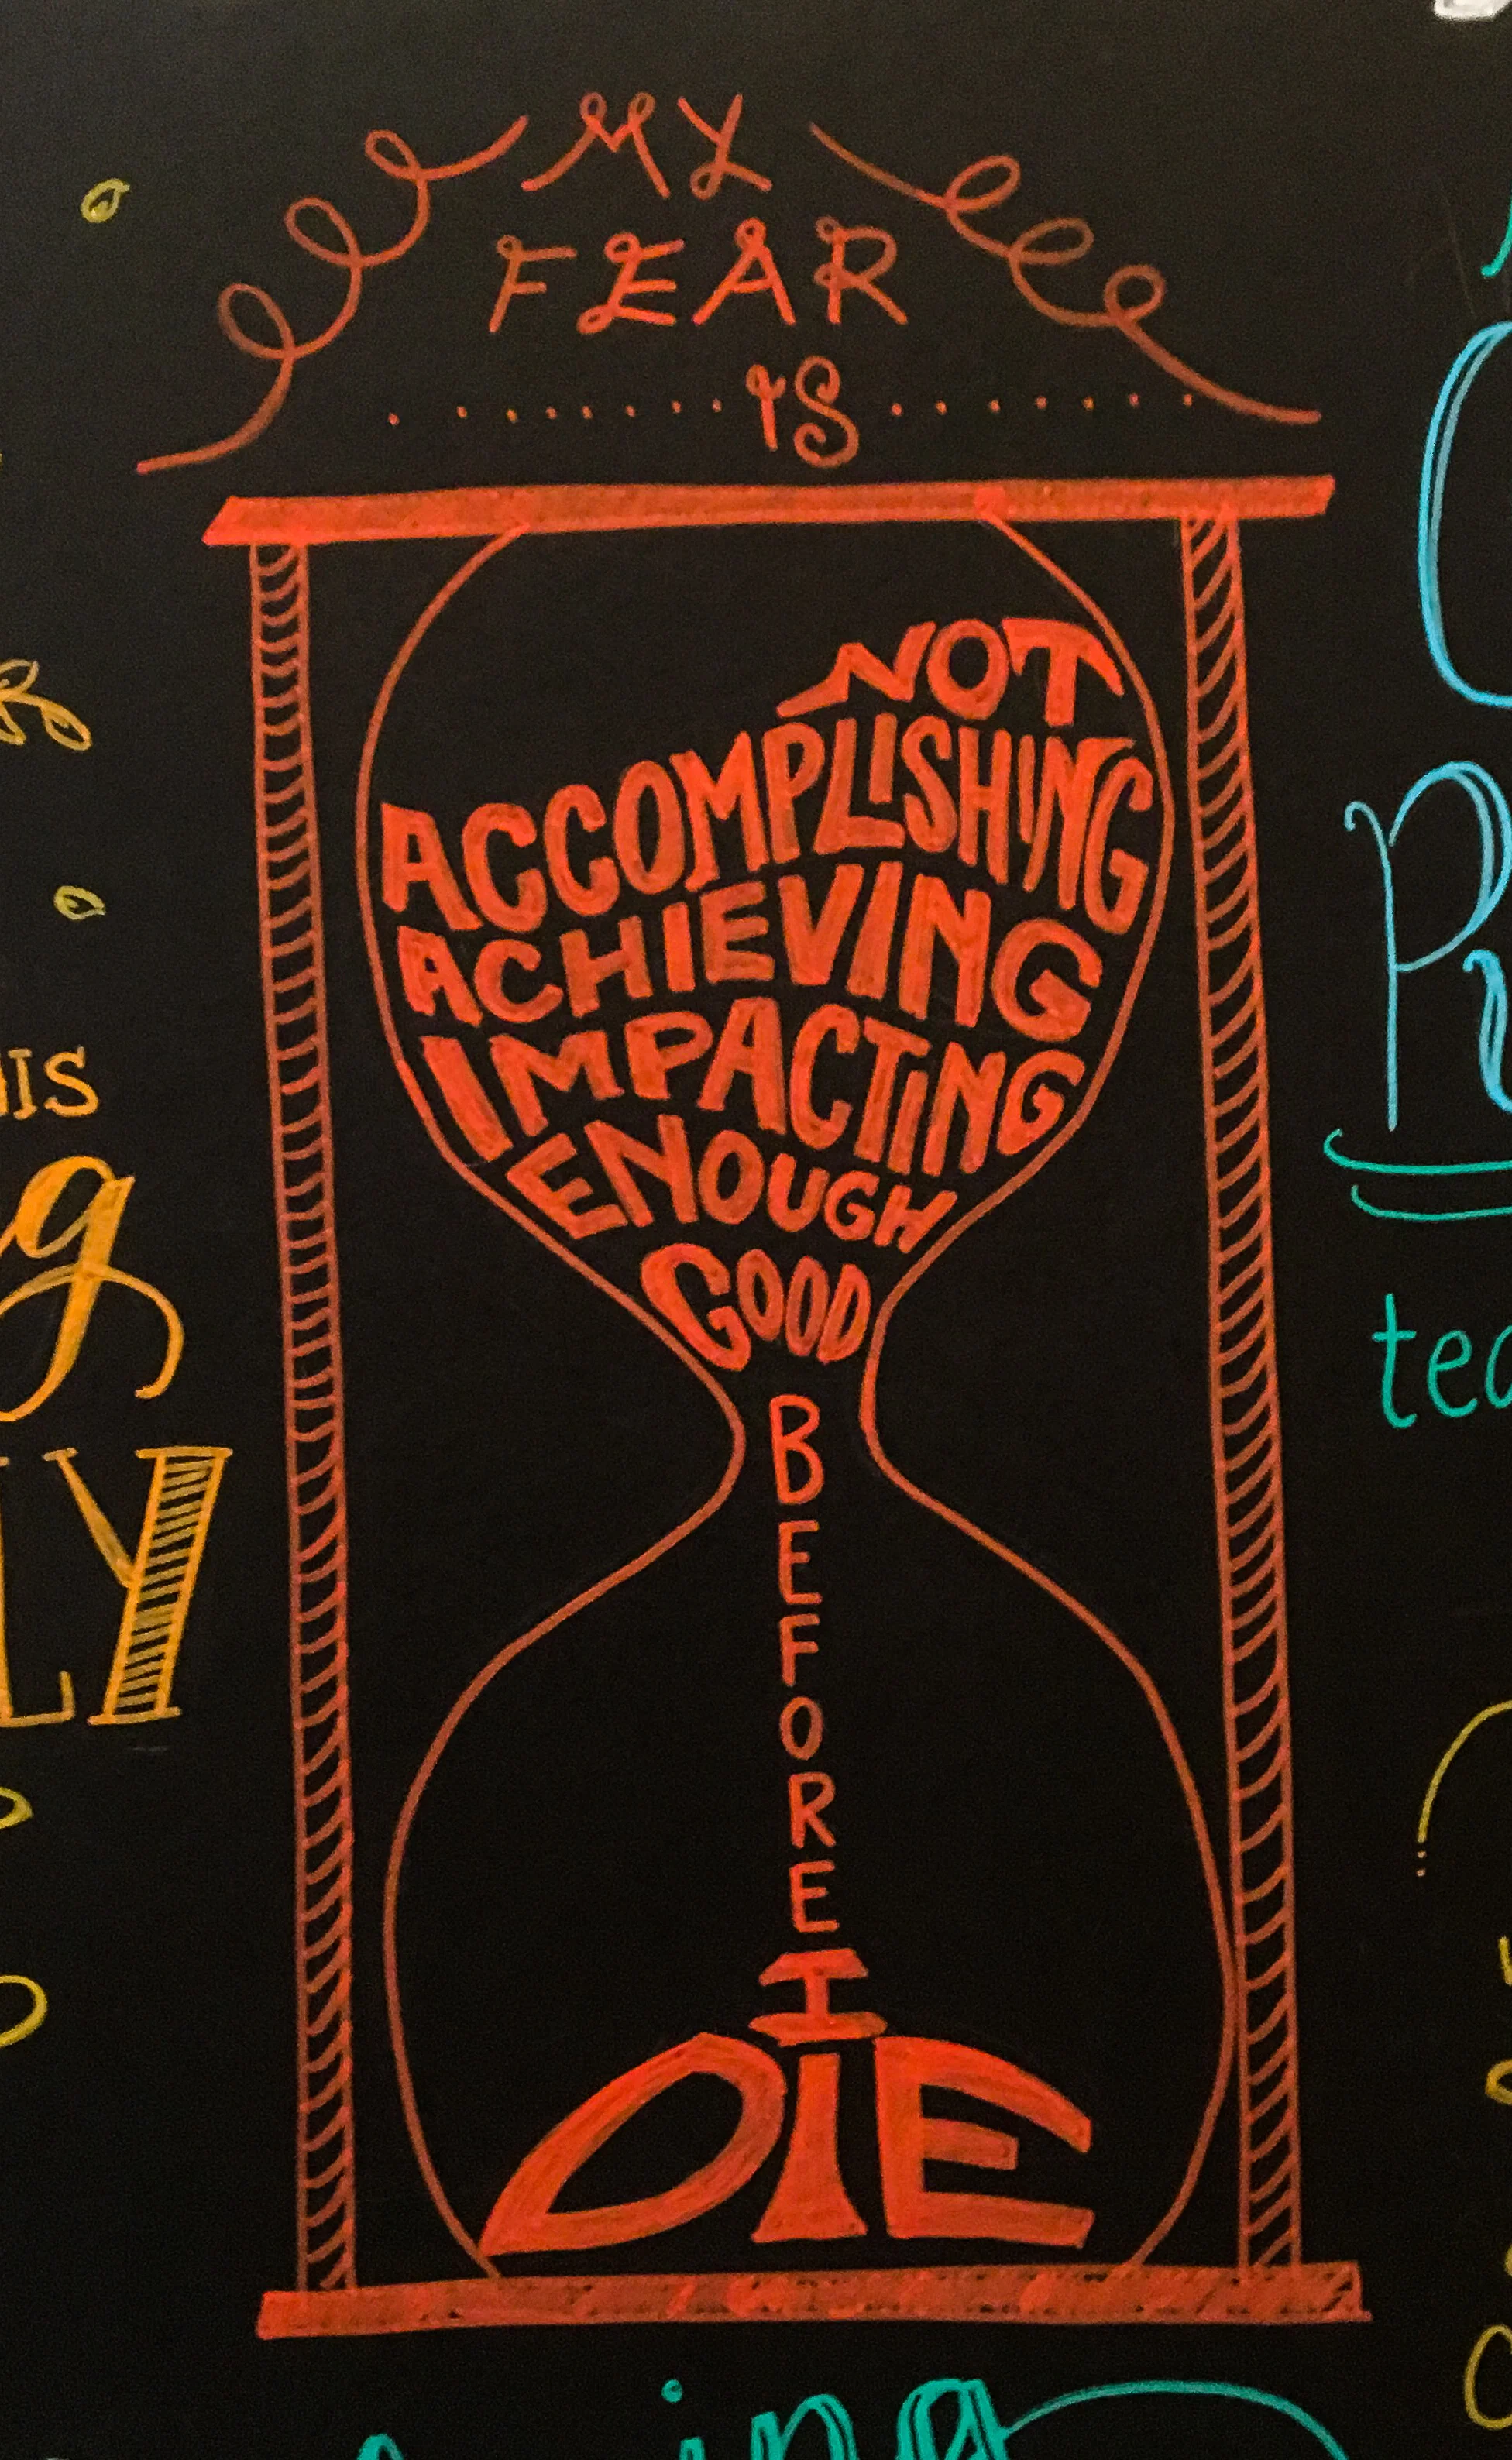 MY
FEAR
IS
NOT
ACCOMPLISHING
ACHIEVING
IMPACTING
ENOUGH
GOOD
BEFORE
I
DIE